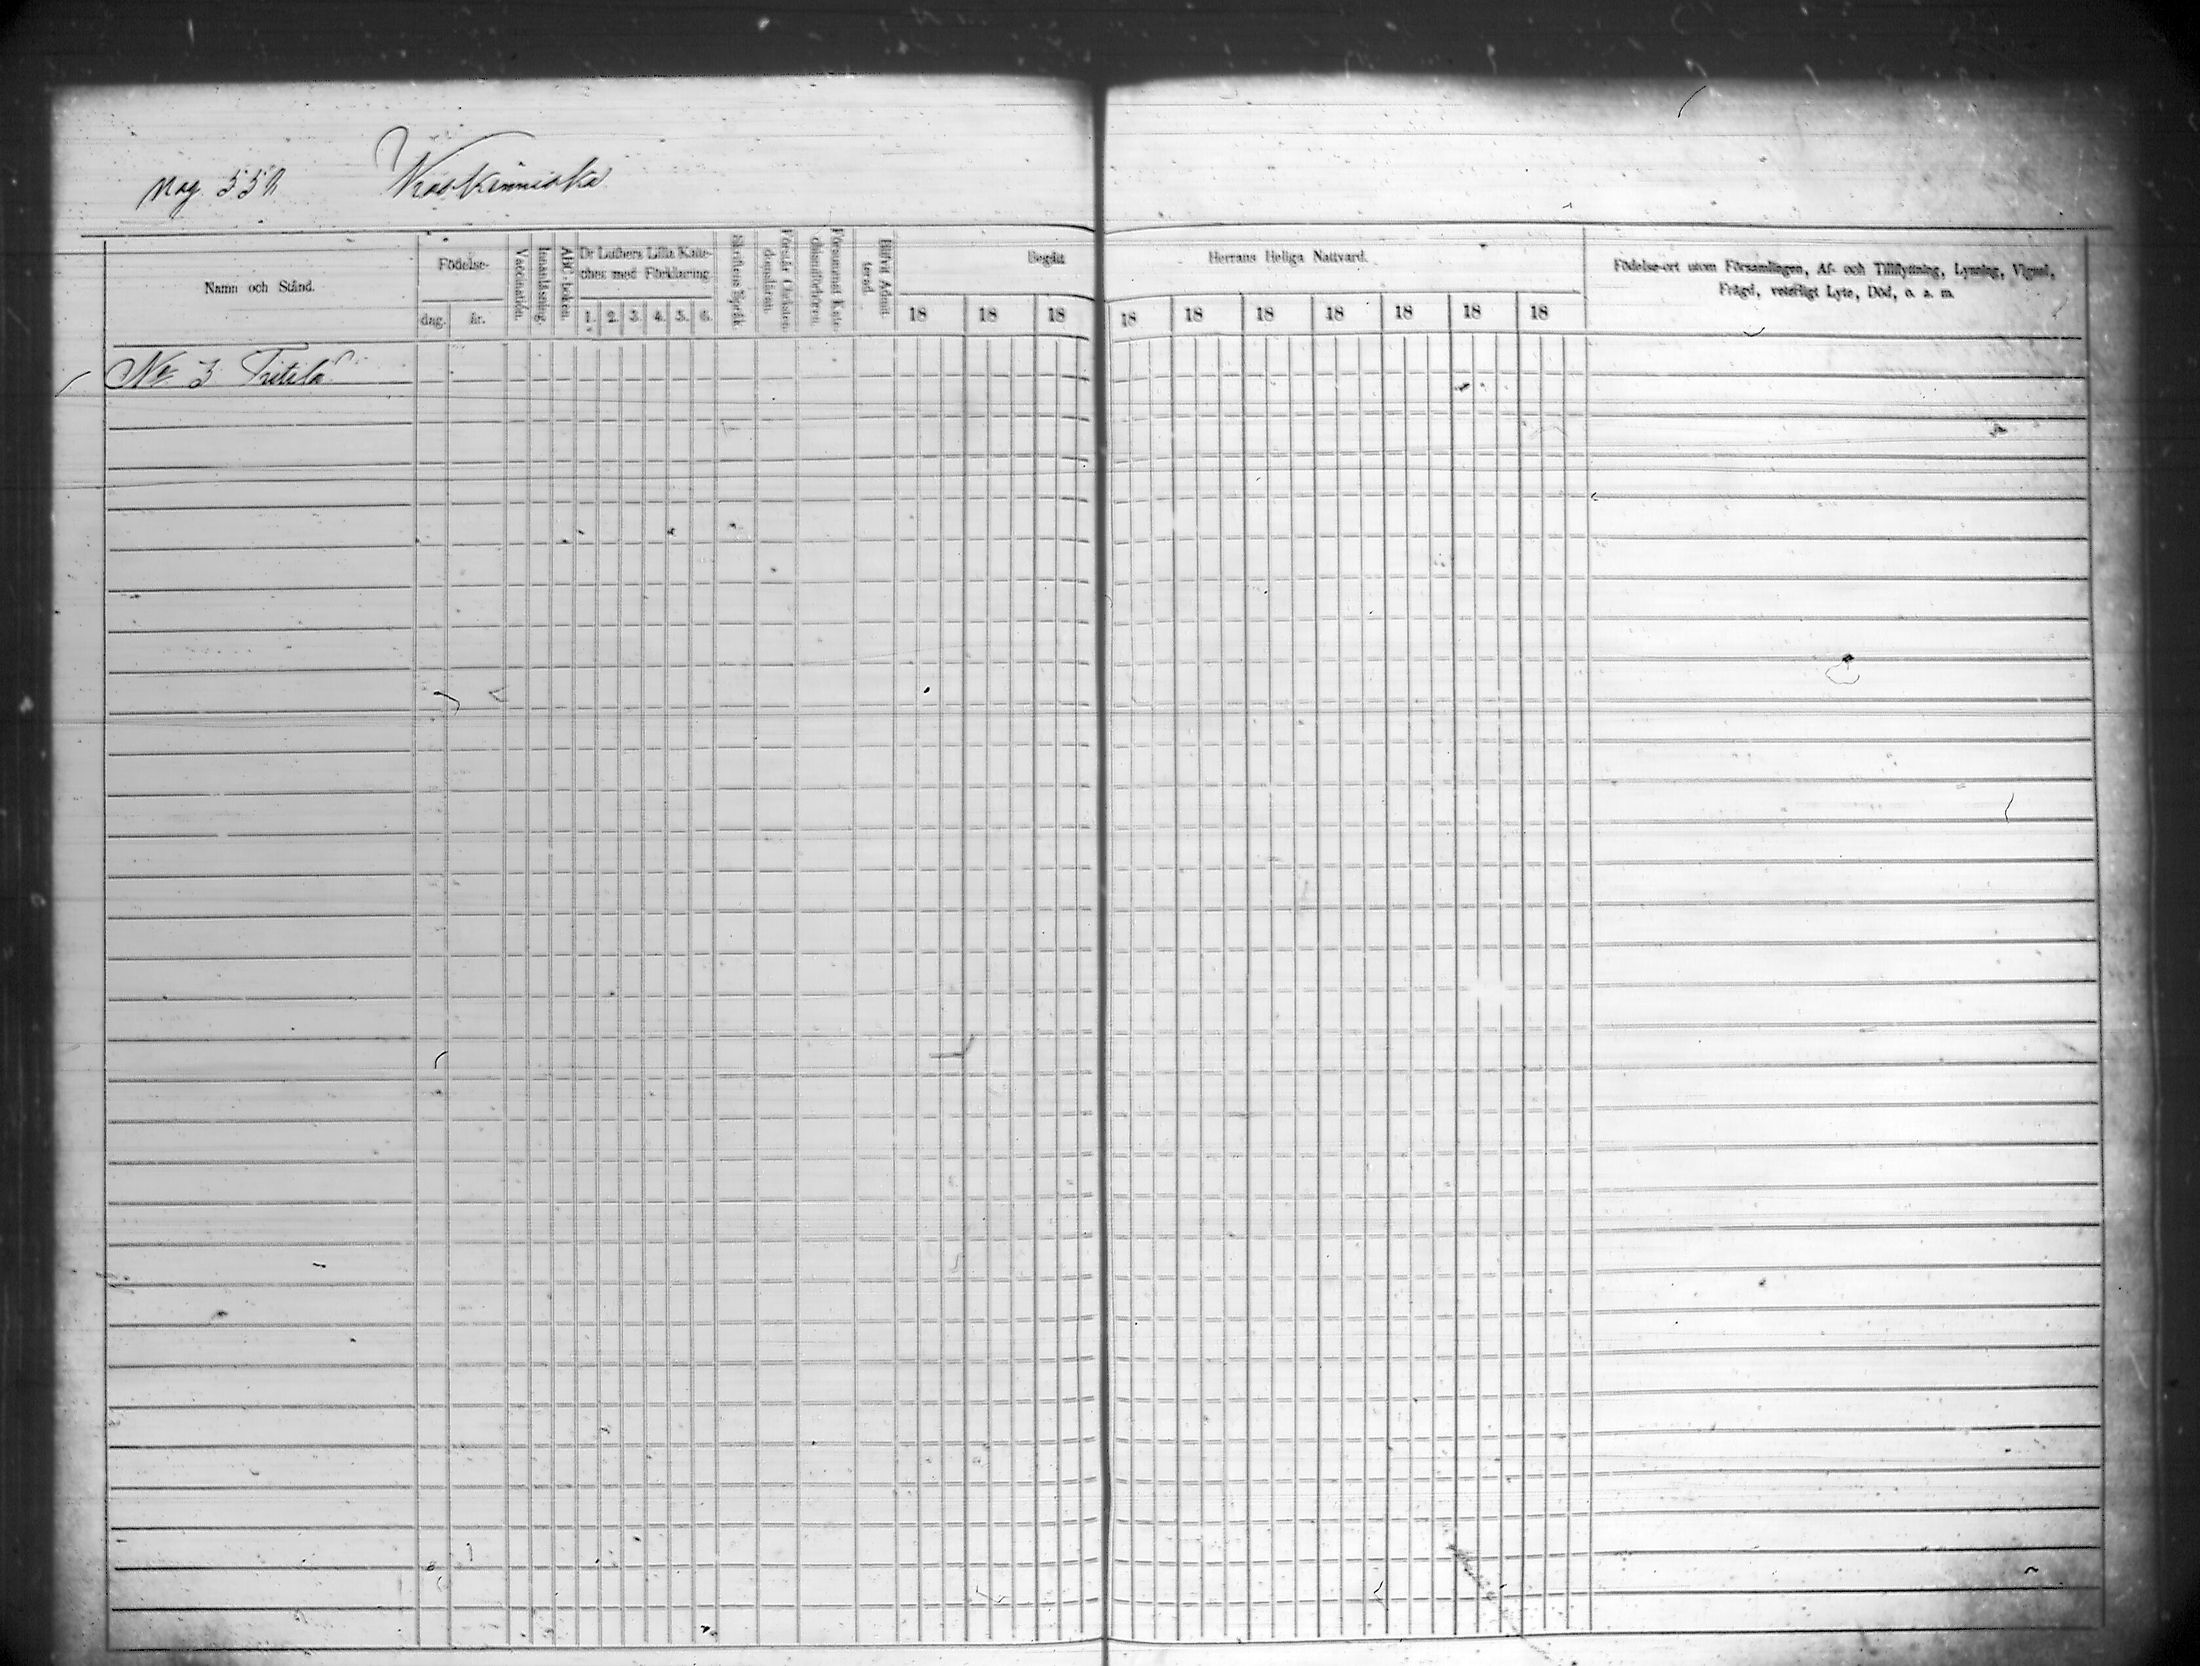 pag. 552 Waskinniska
Namn och Stånd.
Födelse-
dag. år.
Vaccination.
Innanläsning.
ABC-boken.
Dr Luthers Lilla Kate-
ches med Förklaring.
1. 2. 3. 4. 5. 6.
Skriftens Språk.
Förstår Christen-
domsläran.
Försummat Kate-
chismiförhören.
Blifvit Admit-
terad.
Begått Herrans Heliga Nattvard.
18 18 18 18 18 18 18 18 18 18
Födelse-ort utom Församlingen, Af- och Tillflyttning, Lysning, Vigsel,
Frägd, veterligt Lyte, Död, o. s. m.
No 3 Tritilä